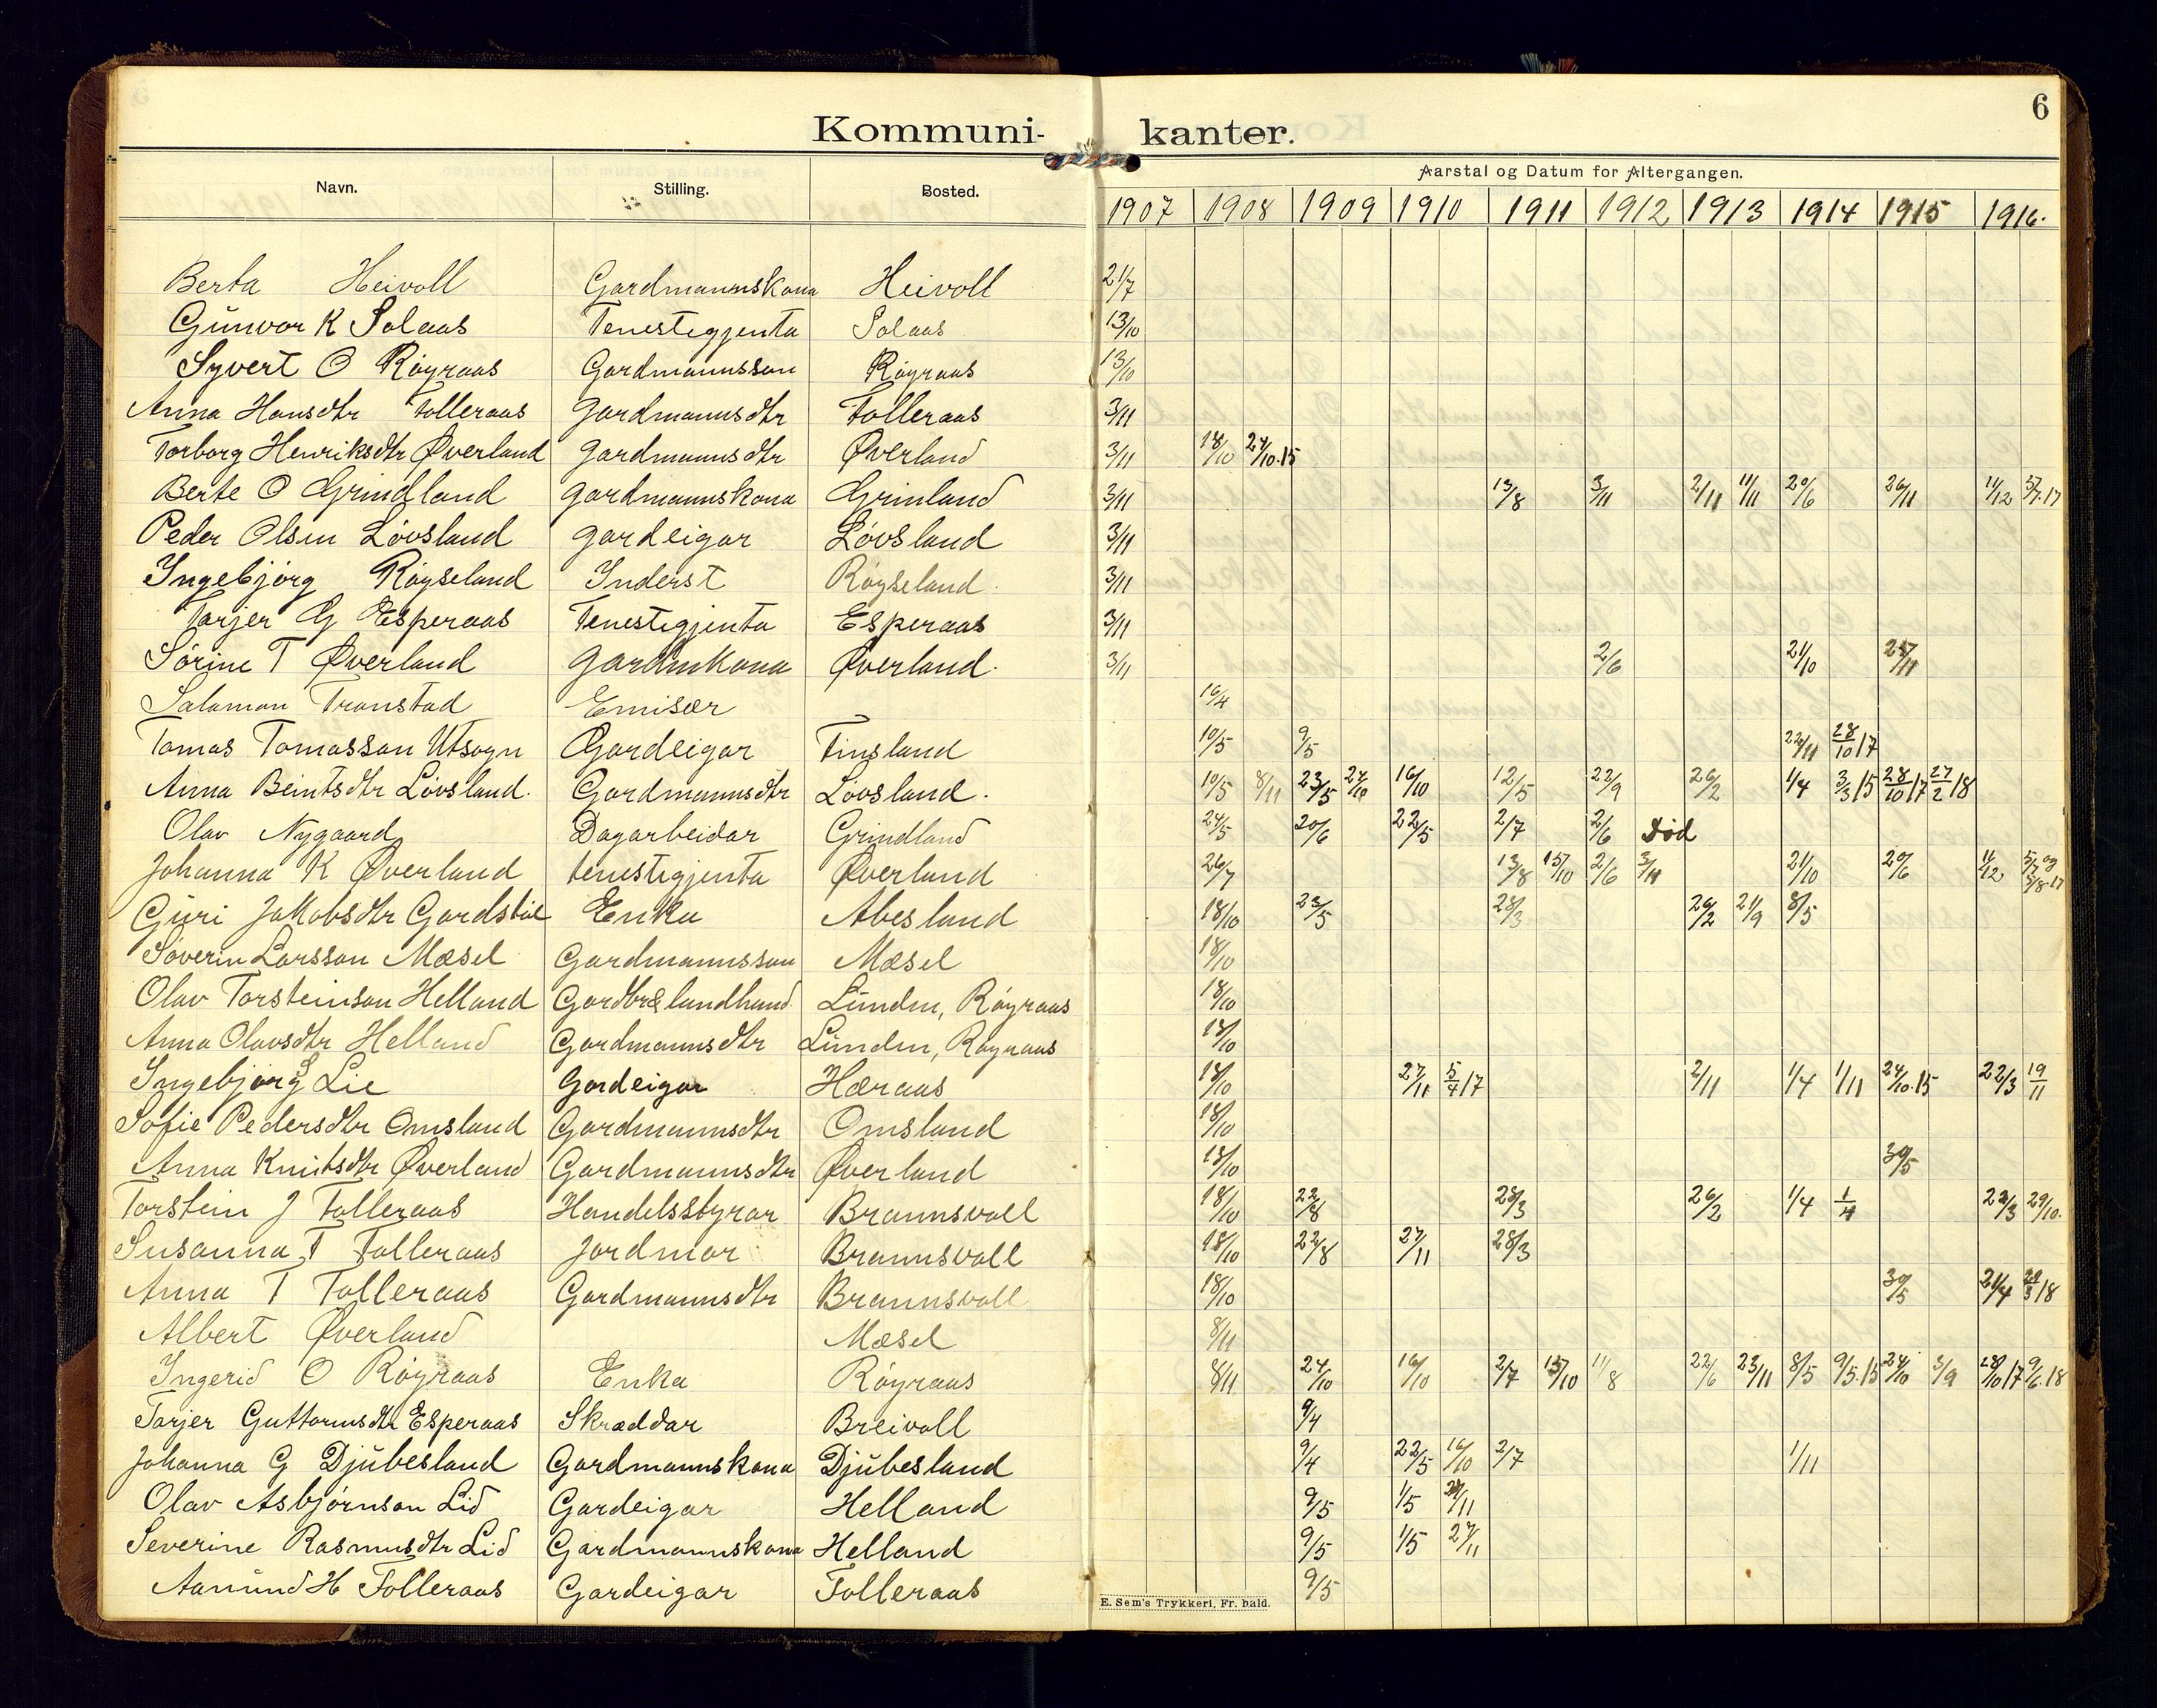 6
Kommuni- kanter.
Navn. Stilling. Bosted. Aarstal og Datum for Altergangen.
1907 1908 1909 1910 1911 1912 1913 1914 1915 1916.
Berta Heivoll Gardmannskona Heivoll 21/7
Gunvor K Solaas Tenestigjenta Solaas 13/10
Syvert O Röyraas Gardmannsson Röyraas 13/10
Anna Hansdtr Tolleraas gardmannsdtr Tolleraas 3/11
Torborg Henriksdtr Øverland gardmannsdtr Øverland 3/11 18/10 24/10.15
Berte O Grindland gardmannskona Grinland 3/11 13/8 3/11 2/11 11/11 20/6 26/11 11/12
Peder Olsen Lövsland gardeigar Lövsland 3/11
Ingebjörg Röyseland Inderst Röyseland 3/11
Tarjer G Esperaas Tenestigjenta Esperaas 3/11
Sörine T Øverland gardmkona Øverland. 3/11 2/6 21/10
Salamon Tronstad Emisær 16/4
Tomas Tomasson Utsogn Gardeigar Finsland 10/5 9/5 22/11 28/10 17
Anna Beintsdtr Lövsland. Gardmannsdtr Lövsland. 10/5 8/11 23/5 24/10 16/10 12/5 22/9 26/2 1/4 3/3 15 28/10 17 27/2 18
Olav Nygaard Dagarbeidar Grindland 24/5 20/6 22/5 2/7 2/6 död
Johanna K Øverland tenestigjenta Øverland 26/7 13/8 15/10 2/6 3/11 21/10 20/6 11/12 5/7 og 5/8.17
Guri Jakobsdtr Gardstöl Enka Abesland 18/10 23/5 28/3 26/2 21/9 8/5
Söverin Larsson Mæsel Gardmannsson Mæsel 18/10
Olav Torsteinson Helland Gardbr & landhand Lunden, Röyraas 18/10
Anna Olavsdtr Helland Gardmannsdtr Lunden, Röyraas 18/10
Ingebjörg S Lie Gardeigar Hæraas 18/10 27/11 5/4 17 2/11 1/4 1/11 24/10.15 22/3 19/11
Sofie Pedersdtr Omsland Gardmannsdtr Omsland 18/10
Anna Knutsdtr Øverland Gardmannsdtr Øverland 18/10 30/5
Torstein J Tolleraas Handelsstyrar Brannsvoll 18/10 22/8 28/3 26/2 1/4 1/4 22/3 29/10.
Susanna T Tolleraas Jordmor Brannsvoll 18/10 22/8 27/11 28/3
Anna T Tolleraas Gardmannsdtr Brannsvoll 18/10 30/5 21/4
Albert Øverland Mæsel 8/11
Ingerid O Röyraas Enka Röyraas 8/11 24/10 16/10 2/7 15/10 11/8 22/6 23/11 8/5 9/5.15 24/10 3/9 28/10 17 9/6.18
Tarjer Guttormsdtr Esperaas Skræddar Breivoll 9/4
Johanna G Djubesland Gardmannskona Djubesland 9/4 22/5 16/10 2/7 1/11
Olav Asbjörnson Lid Gardeigar Helland 9/5 1/5 27/11
Severine Rasmusdtr Lid Gardmannskona Helland 9/5 1/5 27/11
Aanund H Tolleraas Gardeigar Tolleraas 9/5
E. Sem's Trykkeri, Fr. hald.